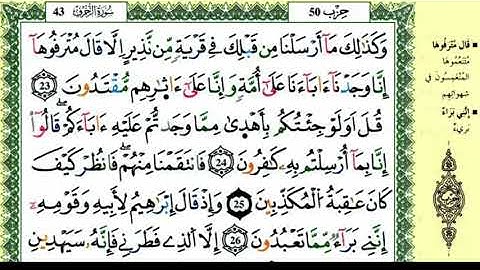 سُورَةُ الزُّخْرُفِ 43
حِزْب 50
وَكَذَٰلِكَ مَآ أَرْسَلْنَا مِن قَبْلِكَ فِے قَرْيَةٍ مِّن نَّذِيرٍ اِلَّا قَالَ مُتْرَفُوهَآ
إِنَّا وَجَدْنَآ ءَابَآءَنَا عَلَىٰٓ أُمَّةٍ وَإِنَّا عَلَىٰٓ ءَاثَٰرِهِم مُّقْتَدُونَ 23
قُلَ اَوَلَوْ جِئْتُكُم بِأَهْدَىٰ مِمَّا وَجَدتُّمْ عَلَيْهِ ءَابَآءَكُمْ قَالُوٓاْ
إِنَّا بِمَآ أُرْسِلْتُم بِهِۦ كَٰفِرُونَ 24 فَانتَقَمْنَا مِنْهُمْ فَانظُرْ كَيْفَ
كَانَ عَٰقِبَةُ الْمُكَذِّبِينَ 25 وَإِذْ قَالَ إِبْرَٰهِيمُ لِأَبِيهِ وَقَوْمِهِۦٓ
إِنَّنِے بَرَآءٌ مِّمَّا تَعْبُدُونَ 26 إِلَّا اَلذِے فَطَرَنِے فَإِنَّهُۥ سَيَهْدِينِ
قَالَ مُتْرَفُوهَا
مُتَنَعِّمُوهَا
الْمُنْغَمِسُونَ فِي
شَهَوَاتِهِم
إِنَّنِي بَرَاءٌ
بَرِيءٌ